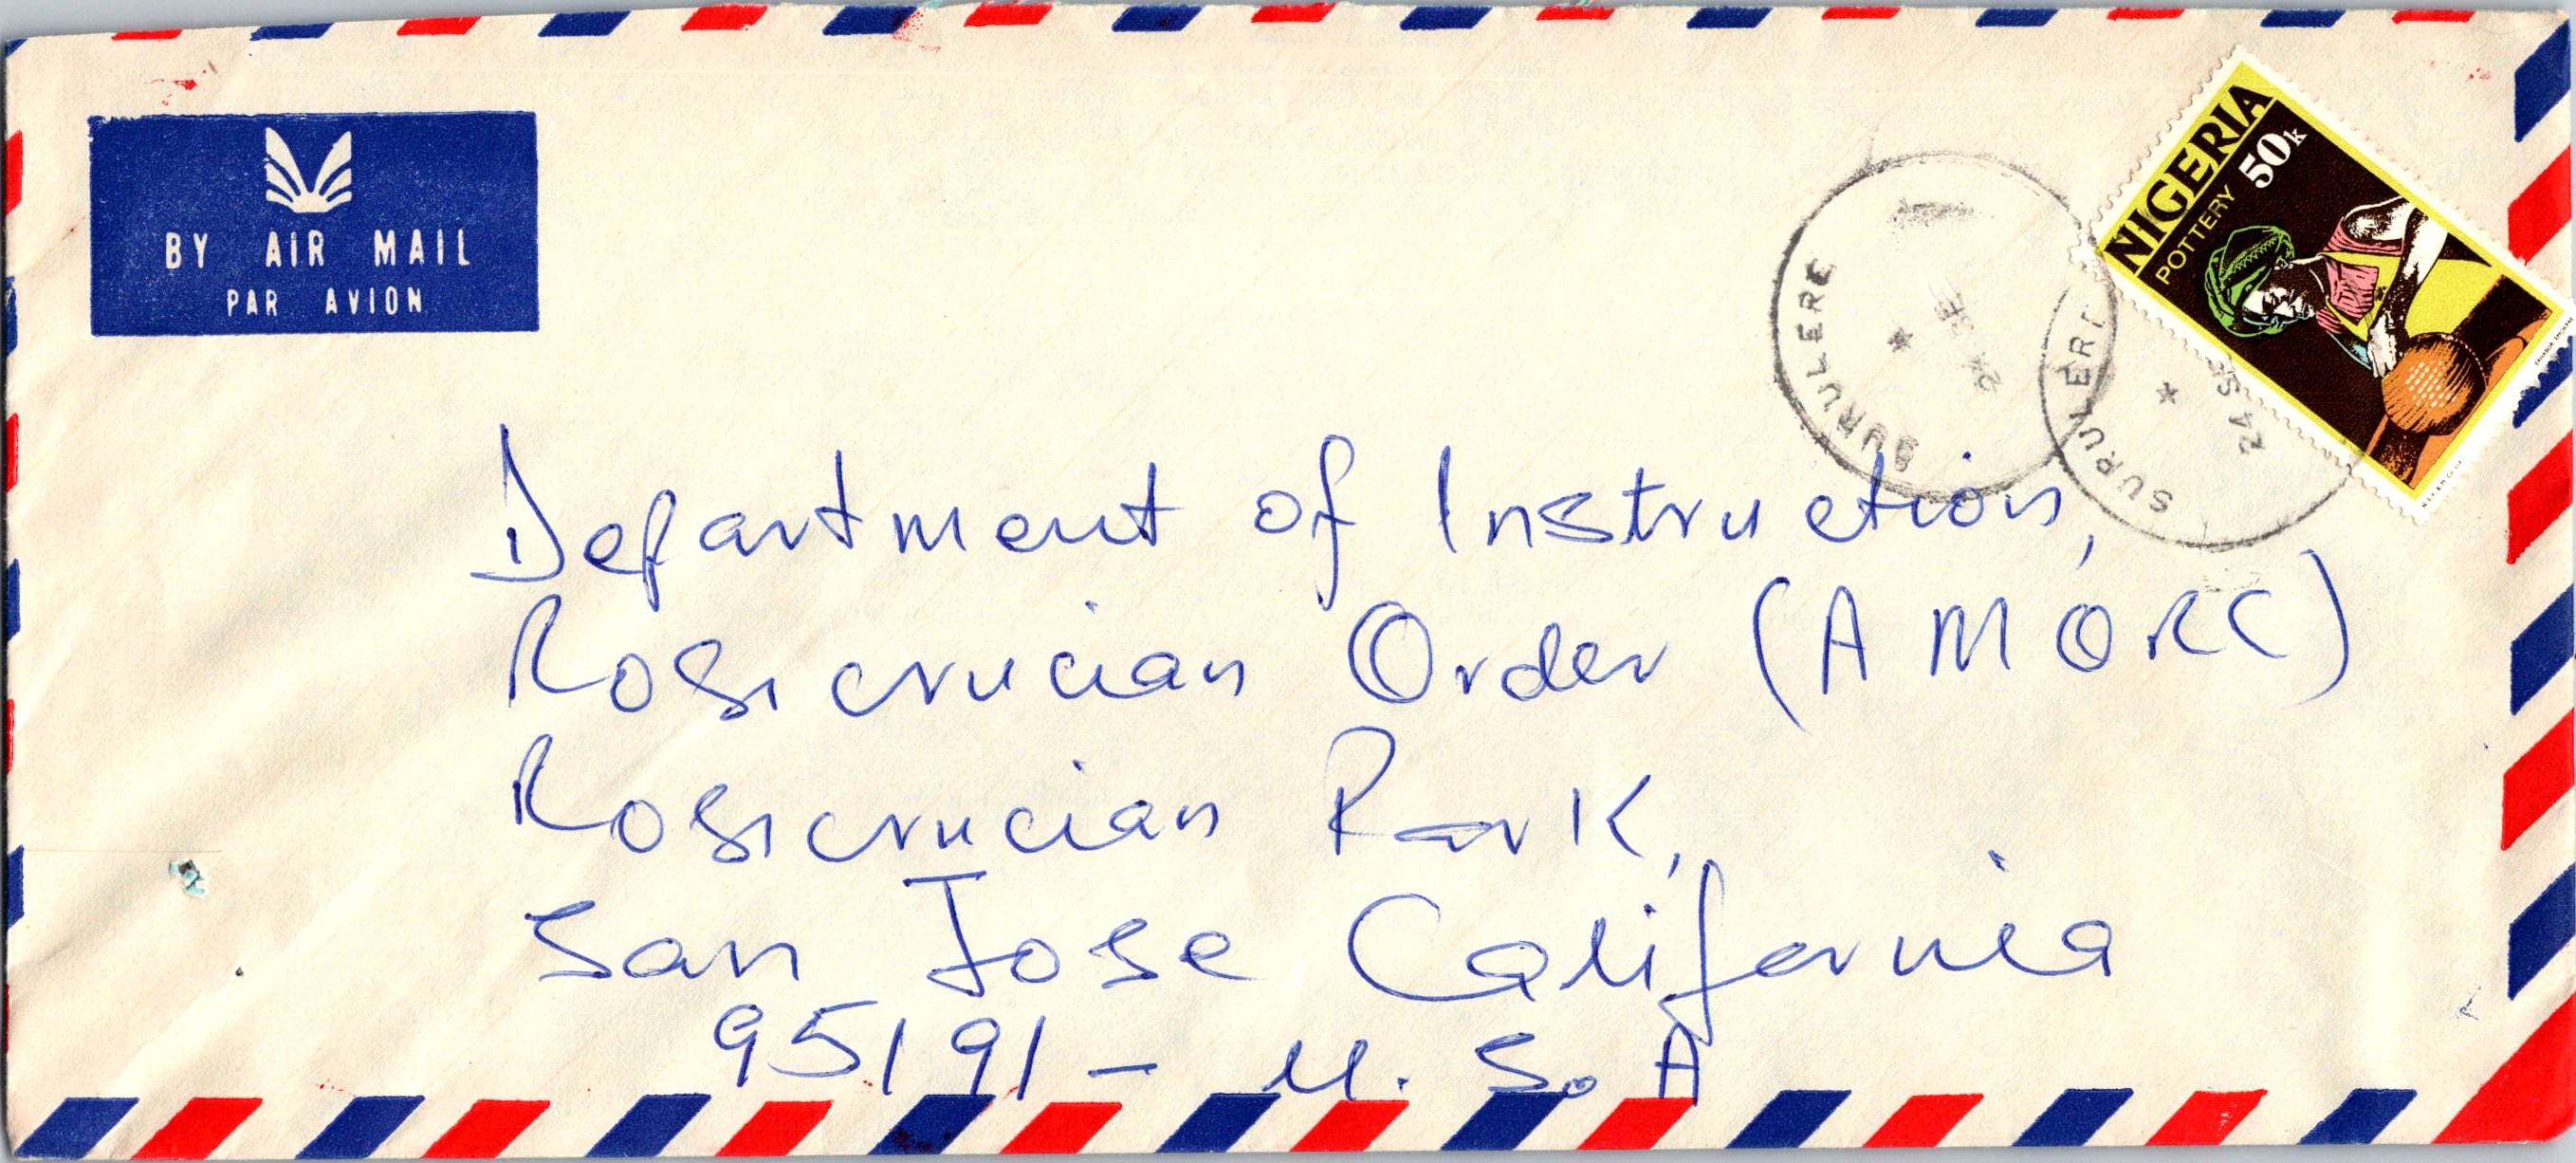 BY AIR MAIL
PAR AVION
NIGERIA
POTTERY 50k
SURULERE
24 SE
SURULERE
24 SE
Department of Instruction,
Rosicrucian Order (AMORC)
Rosicrucian Park,
San Jose California
95191 - U.S.A